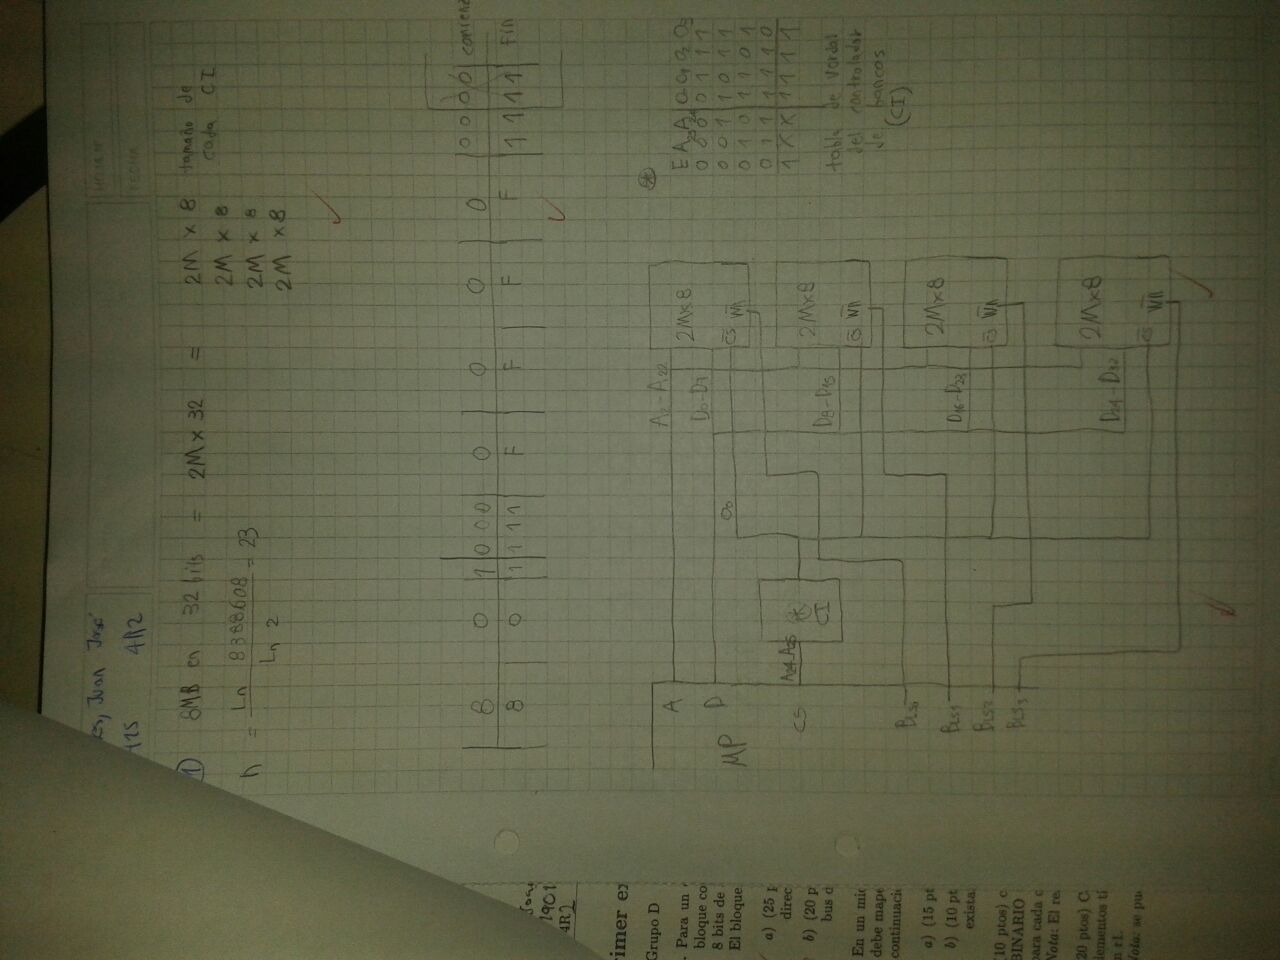 Juan José
4R2
1) 8MB en 32 bits = 2M x 32 = 2M x 8 tamaño de
2M x 8 cada CI
2M x 8
2M x 8
n = Ln 8388608 / Ln 2 = 23
8 | 0 | 1 | 0 0 0 | 0 | 0 | 0 | 0 | 0 0 0 0
8 | 0 | 1 | 1 1 1 | F | F | F | F | 1 1 1 1 | FIN
A
D
MP
CS
BLS0
BLS1
BLS2
BLS3
A24-A25
CI
O0
A0-A22
D0-D7
D8-D15
D16-D23
D24-D32
2M x 8
CS WR
2M x 8
CS WR
2M x 8
CS WR
2M x 8
CS WR
E A25 A24 O0 O1 O2 O3
0 0 0 0 1 1 1
0 0 1 1 0 1 1
0 1 0 1 1 0 1
0 1 1 1 1 1 0
1 X X 1 1 1 1
tabla de verdad
del controlador
de bancos
(CI)
1901
4R2
rimer ex
Grupo D
Para un
bloque co
8 bits de
El bloque
a) (25 p
direc
b) (20 p
bus d
En un mi
debe mape
continuaci
a) (15 pt
b) (10 pt
exista
(10 ptos) c
BINARIO
para cada c
Nota: El re
20 ptos) C
lementos tí
n r1.
Nota: se pu